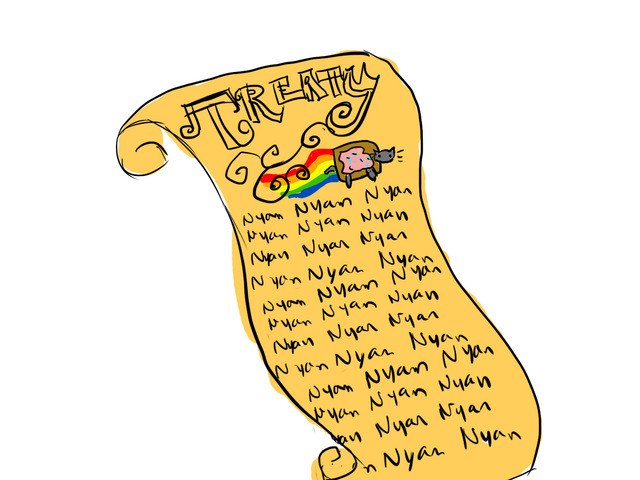 TREATY
Nyan Nyan Nyan
Nyan Nyan Nyan
Nyan Nyan Nyan
Nyan Nyan Nyan
Nyan Nyan Nyan
Nyan Nyan Nyan
Nyan Nyan Nyan
Nyan Nyan Nyan
Nyan Nyan Nyan
Nyan Nyan Nyan
yan Nyan Nyan
n Nyan Nyan